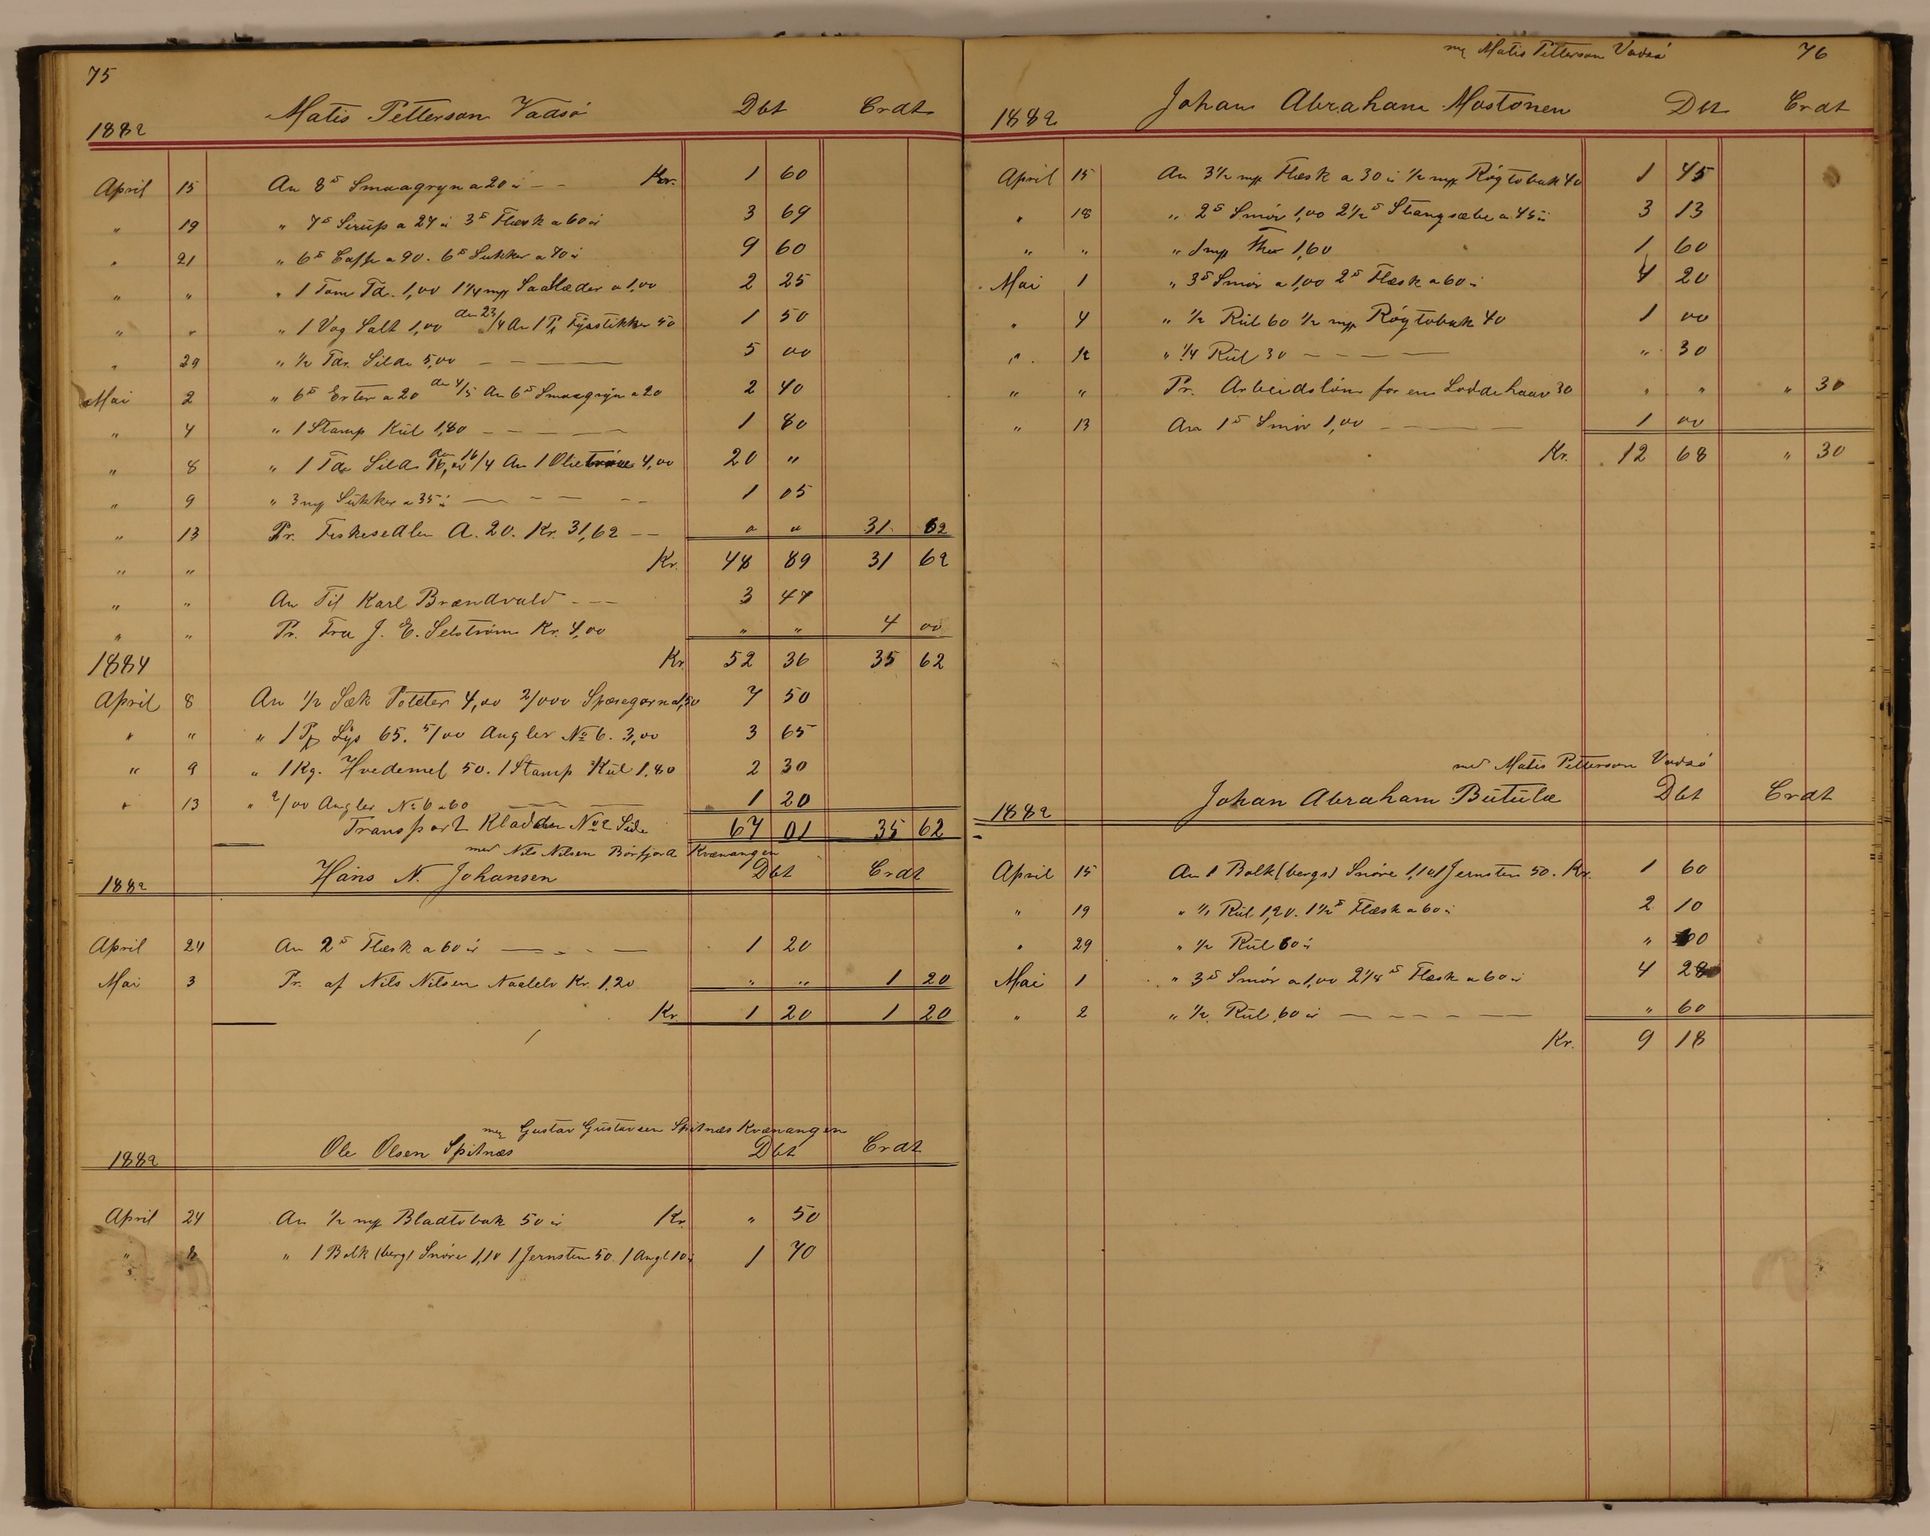 75
Matis Petterson Vadsö Dbt Crdt
1882
April 15 An 8 ℔ Smaagryn a 20 ö — — Kr. 1 60
" 19 " 7 ℔ Sirup a 27 ö 3 ℔ Flæsk a 60 ö 3 69
" 21 " 6 ℔ Caffe a 90. 6 ℔ Sukker a 70 ö 9 60
" " " 1 Tom Td. 1,00 1 1/4 mp Saallæder a 1,00 2 25
" " " 1 Vog Salt 1,00 den 23/4 An 1 Pk Fyrstikker 50 1 50
" 29 " 1/2 Tdr. Silde 5,00 — — — 5 00
Mai 2 " 6 ℔ Erter a 20 den 4/5 An 6 ℔ Smaagryn a 20 2 40
" 4 " 1 Stamp Kul 1,80 — — — — 1 80
" 8 " 1 Tdr Silde 16,00 den 16/4 An 1 Olie 4,00 20 "
" 9 " 3 mp Sukker a 35 ö — — — — 1 05
" 13 Pr. Fiskesedlen A. 20. Kr. 31,62 — — " " 31 62
" " Kr. 48 89 31 62
" " An Til Karl Brændvald — — 3 47
" " Pr. Fra J. E. Selström Kr. 4,00 " " 4 00
1884 Kr. 52 36 35 62
April 8 An 1/2 Sæk Poteter 4,00 2/000 Spæsegarn a 1,50 7 50
" " " 1 Pk Lys 65. 5/00 Angler No 6. 3,00 3 65
" 9 " 1 Kg. Hvedemel 50. 1 Stamp Kul 1,80 2 30
" 13 " 2/00 Angler No 6 a 60 1 20
Transport Kladden No 2 Side 67 01 35 62
med Nils Nilsen Börfjord Kvænangen
1882 Hans N. Johansen Dbt Crdt
April 24 An 2 ℔ Flæsk a 60 ö — — — 1 20
Mai 3 Pr. af Nils Nilsen Kr. 1,20 " " 1 20
Kr. 1 20 1 20
med Gustav Gustavsen Spitnæs Kvænangen
1882 Ole Olsen Spitnæs Dbt Crdt
April 24 An 1/2 mp Bladtobak 50 ö Kr. " 50
" 8 " 1 Bolk (berg) Snöre 1,10 1 Jernsten 50. 1 Angl 10 ö 1 70
med Matis Petterson Vadsö 76
1882 Johan Abraham Mostonen Dbt Crdt
April 15 An 3 1/2 mp Flæsk a 30 ö 1/2 mp Rögtobak 40 1 45
" 18 " 2 ℔ Smör 1,00 2 1/2 ℔ Stangsæbe a 45 ö 3 13
" " " 1 mp Thee 1,60 1 60
Mai 1 " 3 ℔ Smör a 1,00 2 ℔ Flæsk a 60 ö 4 20
" 4 " 1/2 Kul 60 1/2 mp Rögtobak 40 1 00
" 12 " 1/4 Kul 30 — — — — " 30
" " Pr. Arbeidslön for en Loddehaav 30 " " " 30
" 13 An 1 ℔ Smör 1,00 — — — 1 00
Kr. 12 68 " 30
med Matis Petterson Vadsö
1882 Johan Abraham Butula Dbt Crdt
April 15 An 1 Bolk (bergs) Snöre 1,10 1 Jernsten 50. Kr. 1 60
" 19 " 1/1 Kul 1,20. 1 1/2 ℔ Flæsk a 60 ö 2 10
" 29 " 1/2 Kul 60 ö " 60
Mai 1 " 3 ℔ Smör a 1,00 2 1/8 ℔ Flæsk a 60 ö 4 28
" 2 " 1/2 Kul 60 ö — — — — " 60
Kr. 9 18